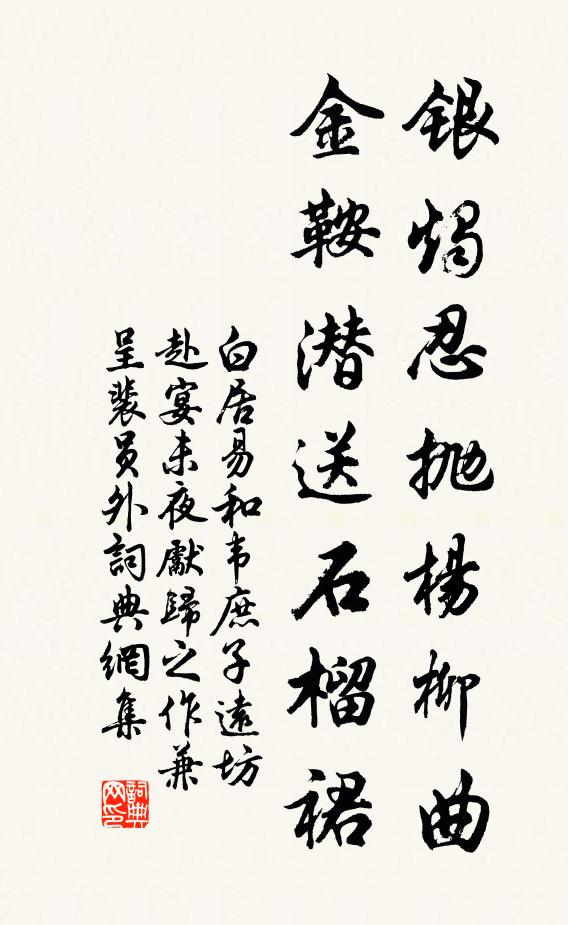 銀燭忍抛楊柳曲
金鞍潜送石榴裙
白居易和韦庶子遠坊
赴宴未夜獻歸之作兼
呈裴员外詞典網集
詞典网印